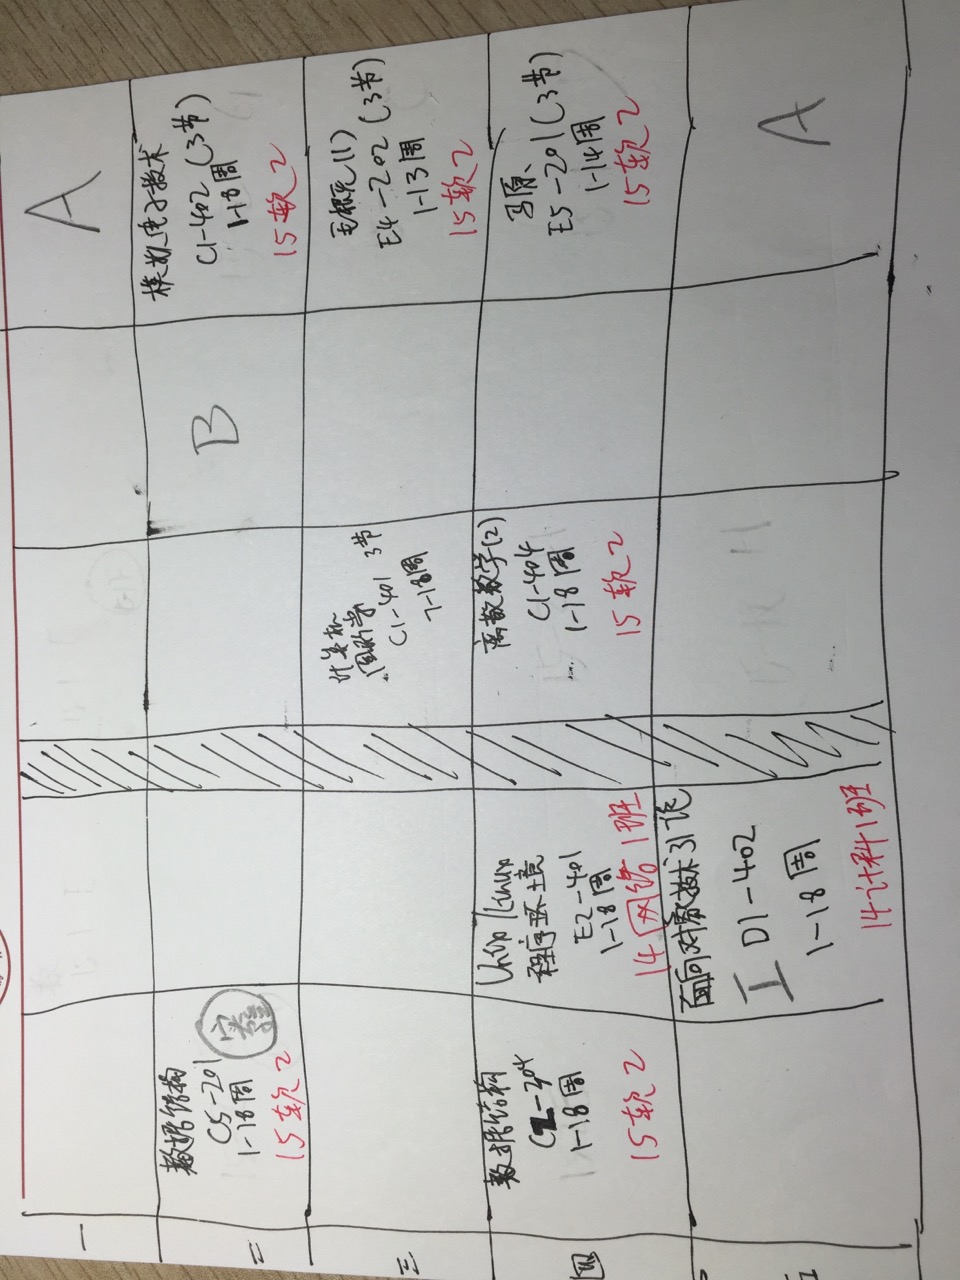 一
A
二
数据结构
C5-201
1-18周
实验
15软2
B
模拟电子技术
C1-402(3节)
1-18周
15软2
三
计算机
图形学
C1-401 3节
7-18周
毛概(1)
E4-202(3节)
1-13周
15软2
四
数据结构
C2-304
1-18周
15软2
Unix/Linux
程序环境
E2-401
1-18周
14网络1班
离散数学(2)
C1-404
1-18周
15软2
马原、
E5-201(3节)
1-14周
15软2
五
面向对象技术引论
I D1-402
1-18周
14计科1班
A